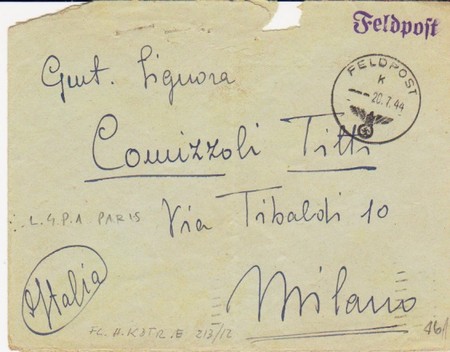 Feldpost
FELDPOST
K
20.7.44
Gent. Signora
Comizzoli Titti
L.G.P.A PARIS
Via Tibaldi 10
Italia
Milano
213/12